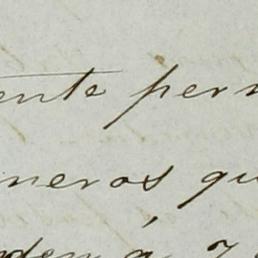 ente perm
neros qu
den á 7